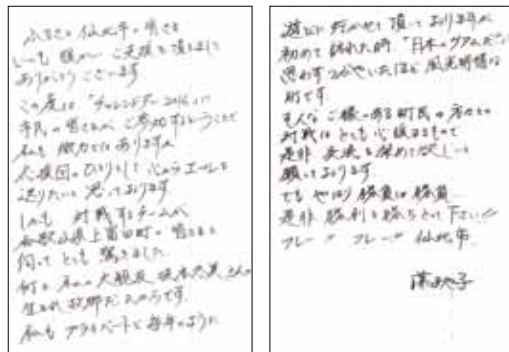 ふるさと仙北市の皆さま
いつも暖かいご支援を頂きまして
ありがとうございます
この度は“チャレンジデー2016”に
市民の皆さまがご参加するということで
私も微力ではありますが
応援団のひとりとして心からエールを
送りたいと思っております
しかも 対戦するチームが
和歌山県上富田町の皆さまと
伺ってとても驚きました
何と私の大親友 坂本冬美さんの
生まれ故郷だったからです
私もプライベートで毎年のように
遊びに行かせて頂いておりますが
初めて訪れた時“日本のグアムだ”と
思わずつぶやいたほど風光明媚な
町です
そんなご縁のある町民の方々との
対戦はとても心暖まるもので
是非 交流を深めて欲しいと
願っております
でも やはり勝負は勝負
是非 勝利を勝ちとって下さい!!
フレーフレー仙北市
藤あや子